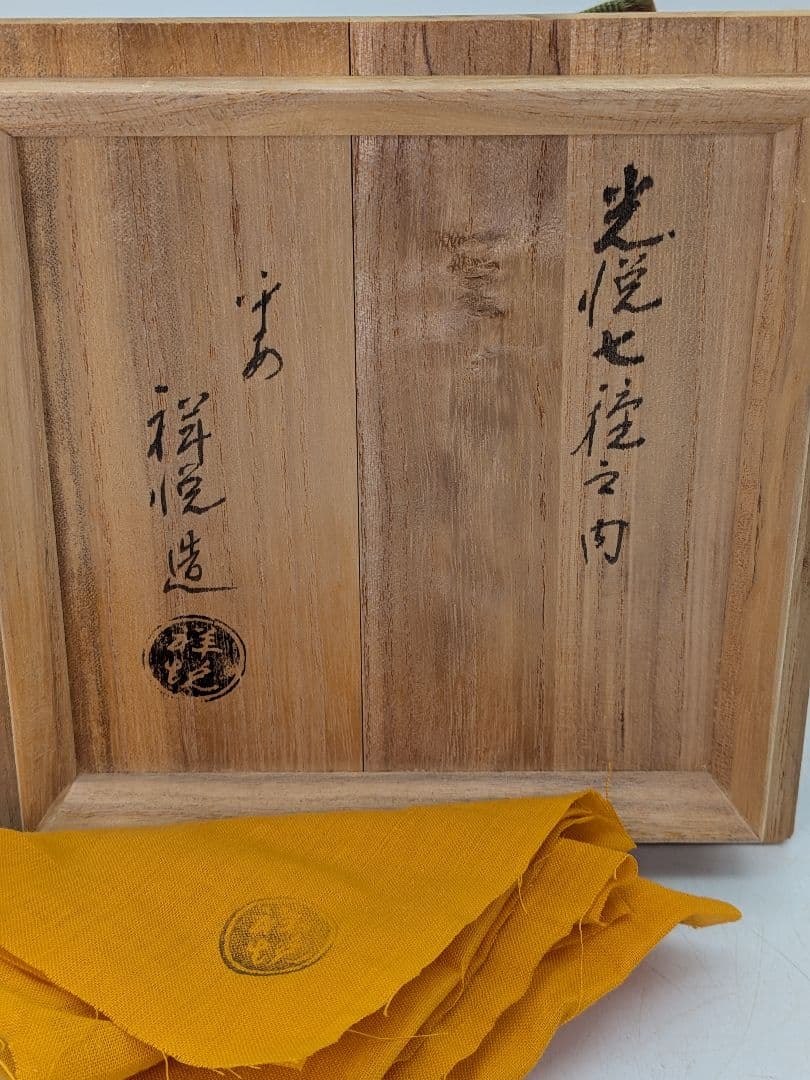 光悦七種之内
祥悦造
祥悦